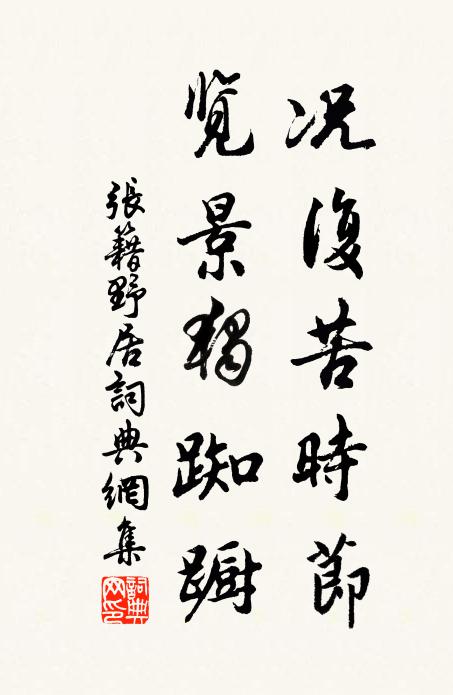 况復苦時節
覽景獨踟蹰
張籍野居詞典網集
詞典网印